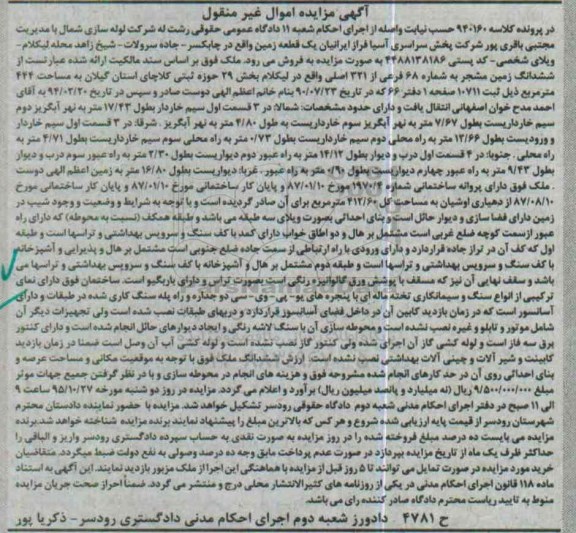 آگهی مزایده اموال غیر منقول
در پرونده کلاسه ۹۴۰۱۶۰ حسب نیابت واصله از اجرای احکام شعبه ۱۱ دادگاه عمومی حقوقی رشت له شرکت لوله سازی شمال با مدیریت
مجتبی باقری پور شرکت پخش سراسری آسیا فراز ایرانیان یک قطعه زمین واقع در چابکسر - جاده سرولات - شیخ زاهد محله لیکلام -
ویلای شخصی - کد پستی ۴۴۸۸۱۳۸۱۸۶ به صورت مزایده به فروش می رود. ملک فوق بر اساس سند مالکیت ارائه شده عبارتست از
ششدانگ زمین مشجر به شماره ۶۸ فرعی از ۳۳۱ اصلی واقع در لیکلام بخش ۲۹ حوزه ثبتی کلاچای استان گیلان به مساحت ۴۴۴
مترمربع ذیل ثبت ۱۰۷۱۱ صفحه ۱ دفتر ۶۶ که در تاریخ ۹۰/۰۷/۲۳ بنام خانم اعظم الهی دوست صادر و سپس در تاریخ ۹۴/۰۲/۲۰ به آقای
احمد مدح خوان اصفهانی انتقال یافت و دارای حدود مشخصات: شمالا: در ۳ قسمت اول سیم خاردار بطول ۱۷/۴۳ متر به نهر آبگریز دوم
سیم خارداریست بطول ۷/۶۷ متر به نهر آبگریز سوم خارداریست به طول ۴/۸۰ متر به نهر آبگریز . شرقا: در ۳ قسمت اول سیم خاردار
و ورودیست بطول ۱۳/۶۶ متر به راه محلی دوم سیم خارداریست بطول ۰/۷۳ متر به راه محلی سوم سیم خارداریست بطول ۴/۷۱ متر به
راه محلی . جنوبا: در ۴ قسمت اول درب و دیوار بطول ۱۴/۱۲ متر به راه عبور دوم دیواریست بطول ۲/۳۰ متر به راه عبور سوم درب و دیوار
بطول ۹/۴۳ متر به راه عبور چهارم دیواریست بطول ۰/۹۰ متر به راه عبور . غربا: دیواریست بطول ۱۶/۸۰ متر به زمین اعظم الهی دوست
. ملک فوق دارای پروانه ساختمانی شماره ۱۹۷/۰۴ مورخ ۸۷/۰۱/۱۰ و پایان کار ساختمانی مورخ ۸۷/۰۱/۱۰ و پایان کار ساختمانی مورخ
۸۷/۰۸/۱۰ از دهیاری اوشیان به مساحت کل ۴۱۲/۶۰ مترمربع برای آن صادر گردیده است و با توجه به شرایط و وضعیت و وجود شیب در
زمین دارای فضا سازی و دیوار حائل است و بنای احداثی بصورت ویلای سه طبقه می باشد و طبقه همکف (نسبت به محوطه) که دارای راه
عبور ازسمت کوچه ضلع غربی است مشتمل بر هال و دو اطاق خواب دارای کمد با کف سنگ و سرویس بهداشتی و تراسها است و طبقه
اول که کف آن در تراز جاده قرار دارد و دارای ورودی با راه ارتباطی از سمت جاده ضلع جنوبی است مشتمل بر هال و پذیرایی و آشپزخانه
با کف سنگ و سرویس بهداشتی و تراسها است و طبقه دوم مشتمل بر هال و آشپزخانه با کف سنگ و سرویس بهداشتی و تراسها می
باشد و سقف نهایی آن نیز که مسقف با پوشش ورق گالوانیزه رنگی نیز به صورت تراس و دارای باربکیو است. ساختمان فوق دارای نمای
ترکیبی از انواع سنگ و سیمانکاری تخته ماله ای با پنجره های یو - پی - وی - سی دو جداره و راه پله سنگ کاری شده در طبقات و دارای
آسانسور است که در زمان بازدید کابین آن در داخل فضای آسانسور قرار دارد و دربهای طبقات نصب شده است ولی تجهیزات دیگر آن
شامل موتور و تابلو و غیره نصب نشده است و محوطه سازی آن با سنگ لاشه رنگی و ایجاد دیوارهای حائل انجام شده است و دارای کنتور
برق سه فاز است و لوله کشی گاز آن اجرای شده ولی کنتور گاز نصب نشده است و لوله کشی آب آن وصل است ضمنا در زمان بازدید
کابینت و شیر آلات و چینی آلات بهداشتی نصب نشده است. ارزش ششدانگ ملک فوق با توجه به موقعیت مکانی و مساحت عرصه و
بنای احداثی روی آن در حد کارهای انجام شده مشروحه فوق و هزینه های انجام در محوطه سازی و با در نظر گرفتن جمیع جهات موثر
مبلغ ۹/۵۰۰/۰۰۰/۰۰۰ ریال (نه میلیارد و پانصد میلیون ریال) برآورد و اعلام می گردد. مزایده در روز دو شنبه مورخه ۹۵/۱۰/۲۷ ساعت ۹
الی ۱۱ صبح در دفتر اجرای احکام مدنی شعبه دوم دادگاه حقوقی رودسر تشکیل خواهد شد. مزایده با حضور نماینده دادستان محترم
شهرستان رودسر از قیمت پایه ارزیابی شده شروع و هر کس که بالاترین مبلغ را پیشنهاد نمایند برنده مزایده شناخته خواهد شد.برنده
مزایده می بایست ده درصد مبلغ فروخته شده را در روز مزایده به صورت نقدی به حساب سپرده دادگستری رودسر واریز و الباقی را
حداکثر ظرف یک ماه از تاریخ مزایده بپردازد در صورت عدم پرداخت مابق وجه ده درصد وصولی به نفع دولت ضبط میگردد. متقاضیان
خرید مورد مزایده در صورت تمایل می توانند تا ۵ روز قبل از مزایده با هماهنگی این اجرا از ملک مزبور بازدید نمایند. این آگهی به استناد
ماده ۱۱۸ قانون اجرای احکام مدنی در یکی از روزنامه های کثیرالانتشار محلی درج و منتشر می گردد. ضمناً احراز صحت جریان مزایده
منوط به تایید ریاست محترم دادگاه صادر کننده رای می باشد.
ح ۴۷۸۱ دادورز شعبه دوم اجرای احکام مدنی دادگستری رودسر - ذکریا پور